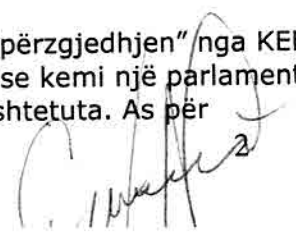 përzgjedhjen” nga KEI
se kemi një parlament
shtetuta. As për
2